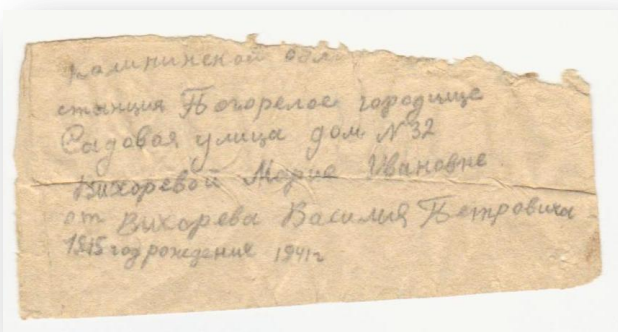 Калининской обл
станция Погорелое городище
Садовая улица дом № 32
Вихоревой Марие Ивановне
от Вихорева Василия Петровича
1915 год рождения 1941 г